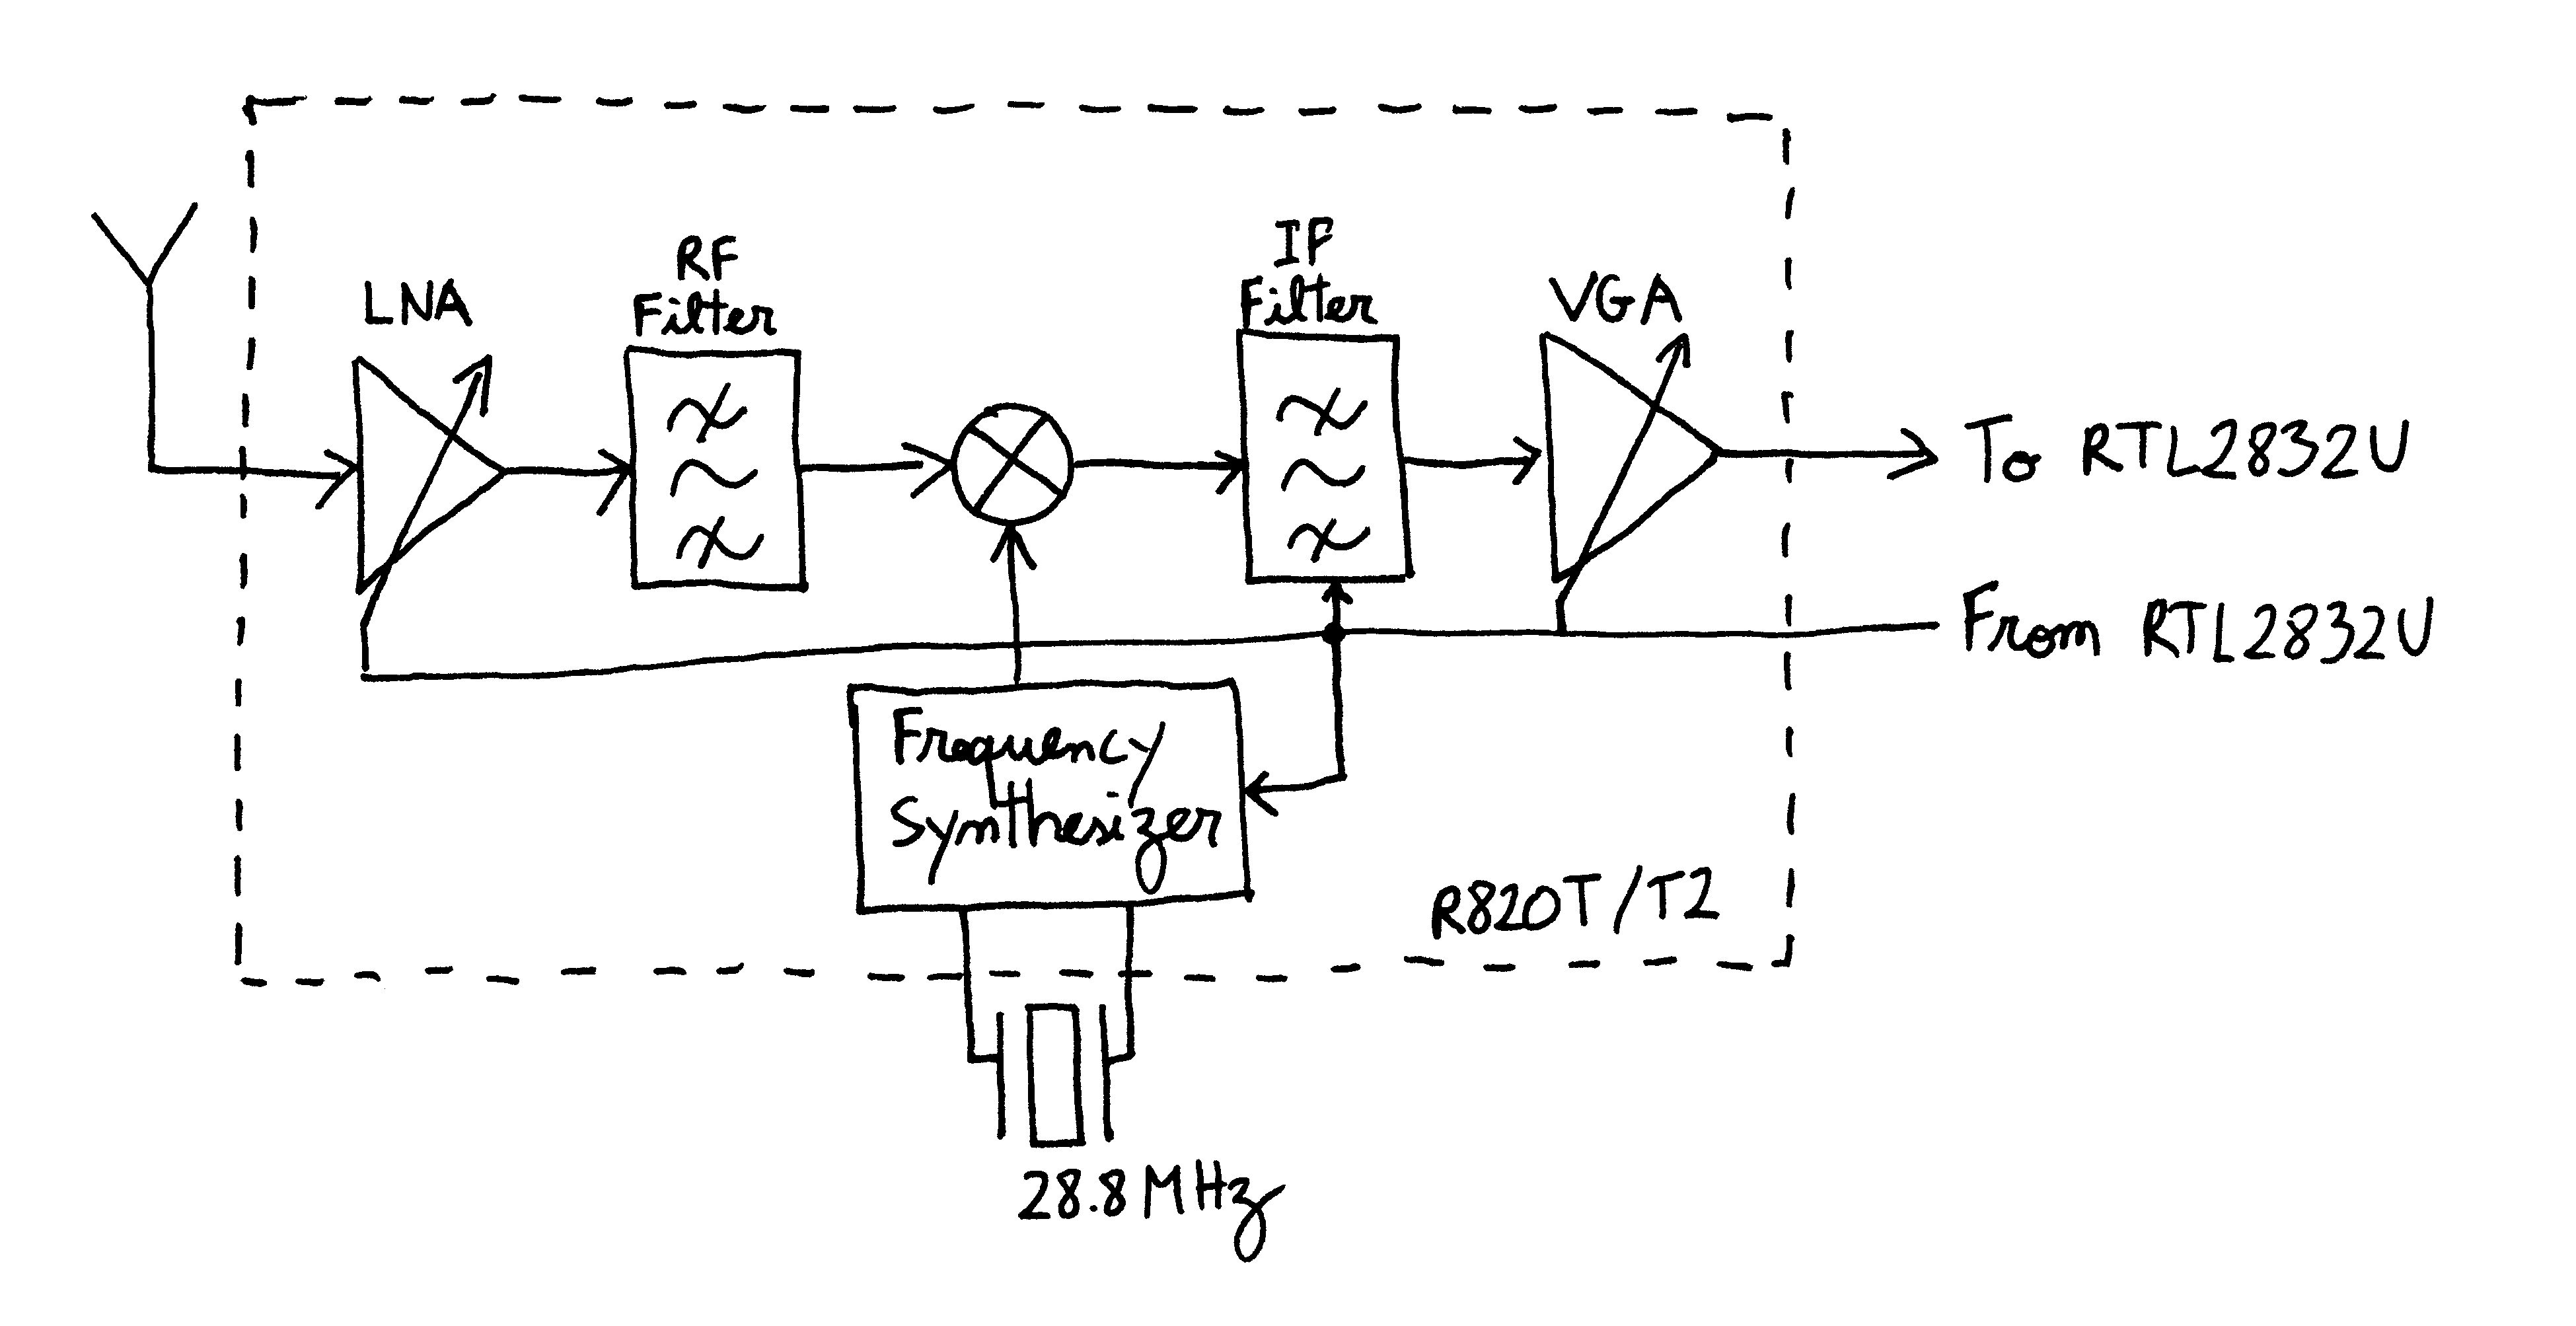 LNA
RF
Filter
IF
Filter
VGA
To RTL2832U
From RTL2832U
Frequency
Synthesizer
R820T/T2
28.8 MHz